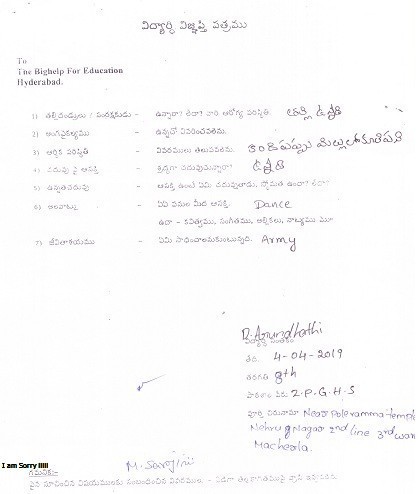 విద్యార్థి విజ్ఞప్తి పత్రము
To
The Bighelp For Education
Hyderabad.
1) తల్లిదండ్రులు / సంరక్షకుడు - ఉన్నారా? లేదా? వారి ఆరోగ్య పరిస్థితి. తల్లి ఉన్నది
2) అంగవైకల్యము - ఉన్నచో వివరించవలెను.
3) ఆర్థిక పరిస్థితి - వివరములు తెలుపవలెను.
4) చదువు పై ఆసక్తి - శ్రద్ధగా చదువుచున్నారా? ఉన్నది
5) ఉన్నతచదువు - ఆసక్తి ఉంటే ఏమి చదువుతాడు, స్తోమత ఉందా? లేదా?
6) అలవాట్లు - ఏఏ పనుల మీద ఆసక్తి. Dance
ఉదా - కవిత్వము, సంగీతము, అల్లికలు, నాట్యము
7) జీవితాశయము - ఏమి సాధించాలనుకుంటున్నది. Army
R. Arundhathi
విద్యార్థి సంతకం
తేది. 4-04-2019
తరగతి 8th
పాఠశాల పేరు Z.P.G.H.S
పూర్తి చిరునామా Near Poleramma temple
Nehru g Nagar 2nd line 3rd war
Macherla.
I am Sorry !!!!!
M. Sarojini
గమనిక:-
పైన సూచించిన విషయములకు సంబంధించిన వివరములు -